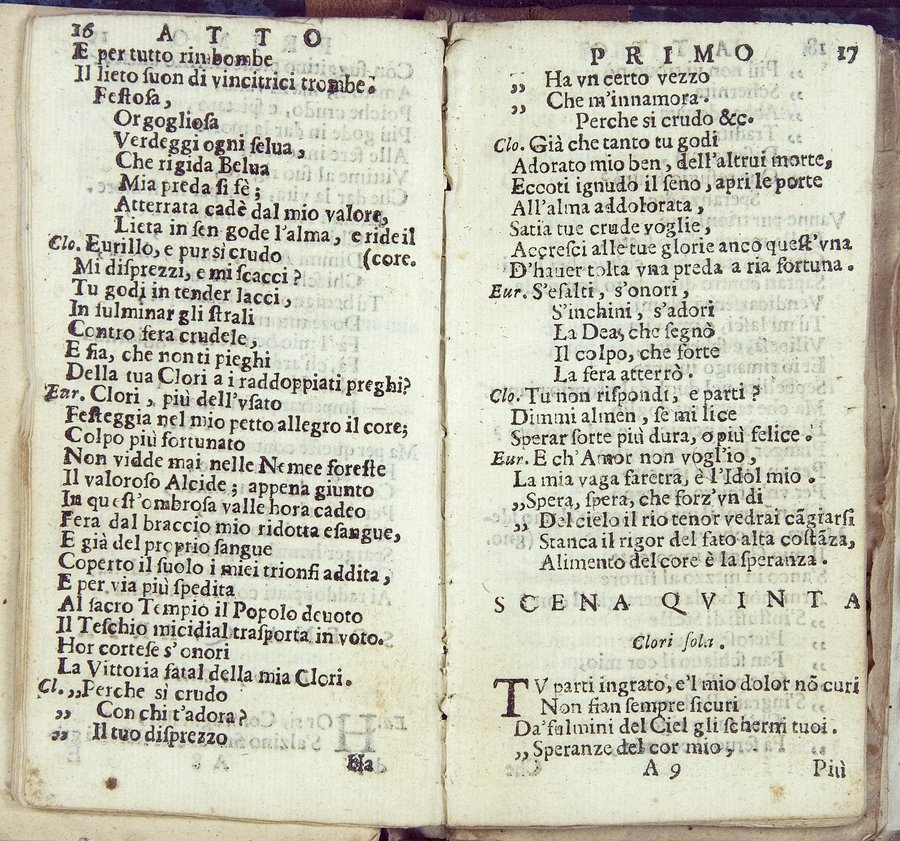 16 ATTO
E per tutto rimbombe
Il lieto suon di vincitrici trombe.
Festosa,
Orgogliosa
Verdeggi ogni selua,
Che rigida Belua
Mia preda si fè;
Atterrata cadè dal mio valore,
Lieta in sen gode l'alma, e ride il
(core.
Clo. Eurillo, e pur si crudo
Mi disprezzi, e mi scacci?
Tu godi in tender lacci,
In fulminar gli strali
Contro fera crudele,
E fia, che non ti pieghi
Della tua Clori a i raddoppiati preghi?
Eur. Clori, più dell'vsato
Festeggia nel mio petto allegro il core;
Colpo più fortunato
Non vidde mai nelle Nemee foreste
Il valoroso Alcide; appena giunto
In quest'ombrosa valle hora cadeo
Fera dal braccio mio ridotta esangue,
E già del proprio sangue
Coperto il suolo i miei trionfi addita,
E per via più spedita
Al sacro Tempio il Popolo deuoto
Il Teschio micidial trasporta in voto.
Hor cortese s'onori
La Vittoria fatal della mia Clori.
Cl. „Perche si crudo
„ Con chi t'adora?
„ Il tuo disprezzo
Ha
PRIMO 17
„ Ha vn certo vezzo
„ Che m'innamora.
Perche si crudo &c.
Clo. Già che tanto tu godi
Adorato mio ben, dell'altrui morte,
Eccoti ignudo il seno, apri le porte
All'alma addolorata,
Satia tue crude voglie,
Accresci alle tue glorie anco quest'vna
D'hauer tolta vna preda a ria fortuna.
Eur. S'esalti, s'onori,
S'inchini, s'adori
La Dea, che segnò
Il colpo, che forte
La fera atterrò.
Clo. Tu non rispondi, e parti?
Dimmi almen, se mi lice
Sperar sorte più dura, o più felice.
Eur. E ch'Amor non vogl'io,
La mia vaga faretra, è l'Idol mio.
„Spera, spera, che forz'vn di
„ Del cielo il rio tenor vedrai cãgiarsi
„ Stanca il rigor del fato alta costãza,
Alimento del core è la speranza.
SCENA QVINTA
Clori sola.
TV parti ingrato, e'l mio dolor nõ curi
Non fian sempre sicuri
Da' fulmini del Ciel gli schermi tuoi.
„Speranze del cor mio,
A 9 Più